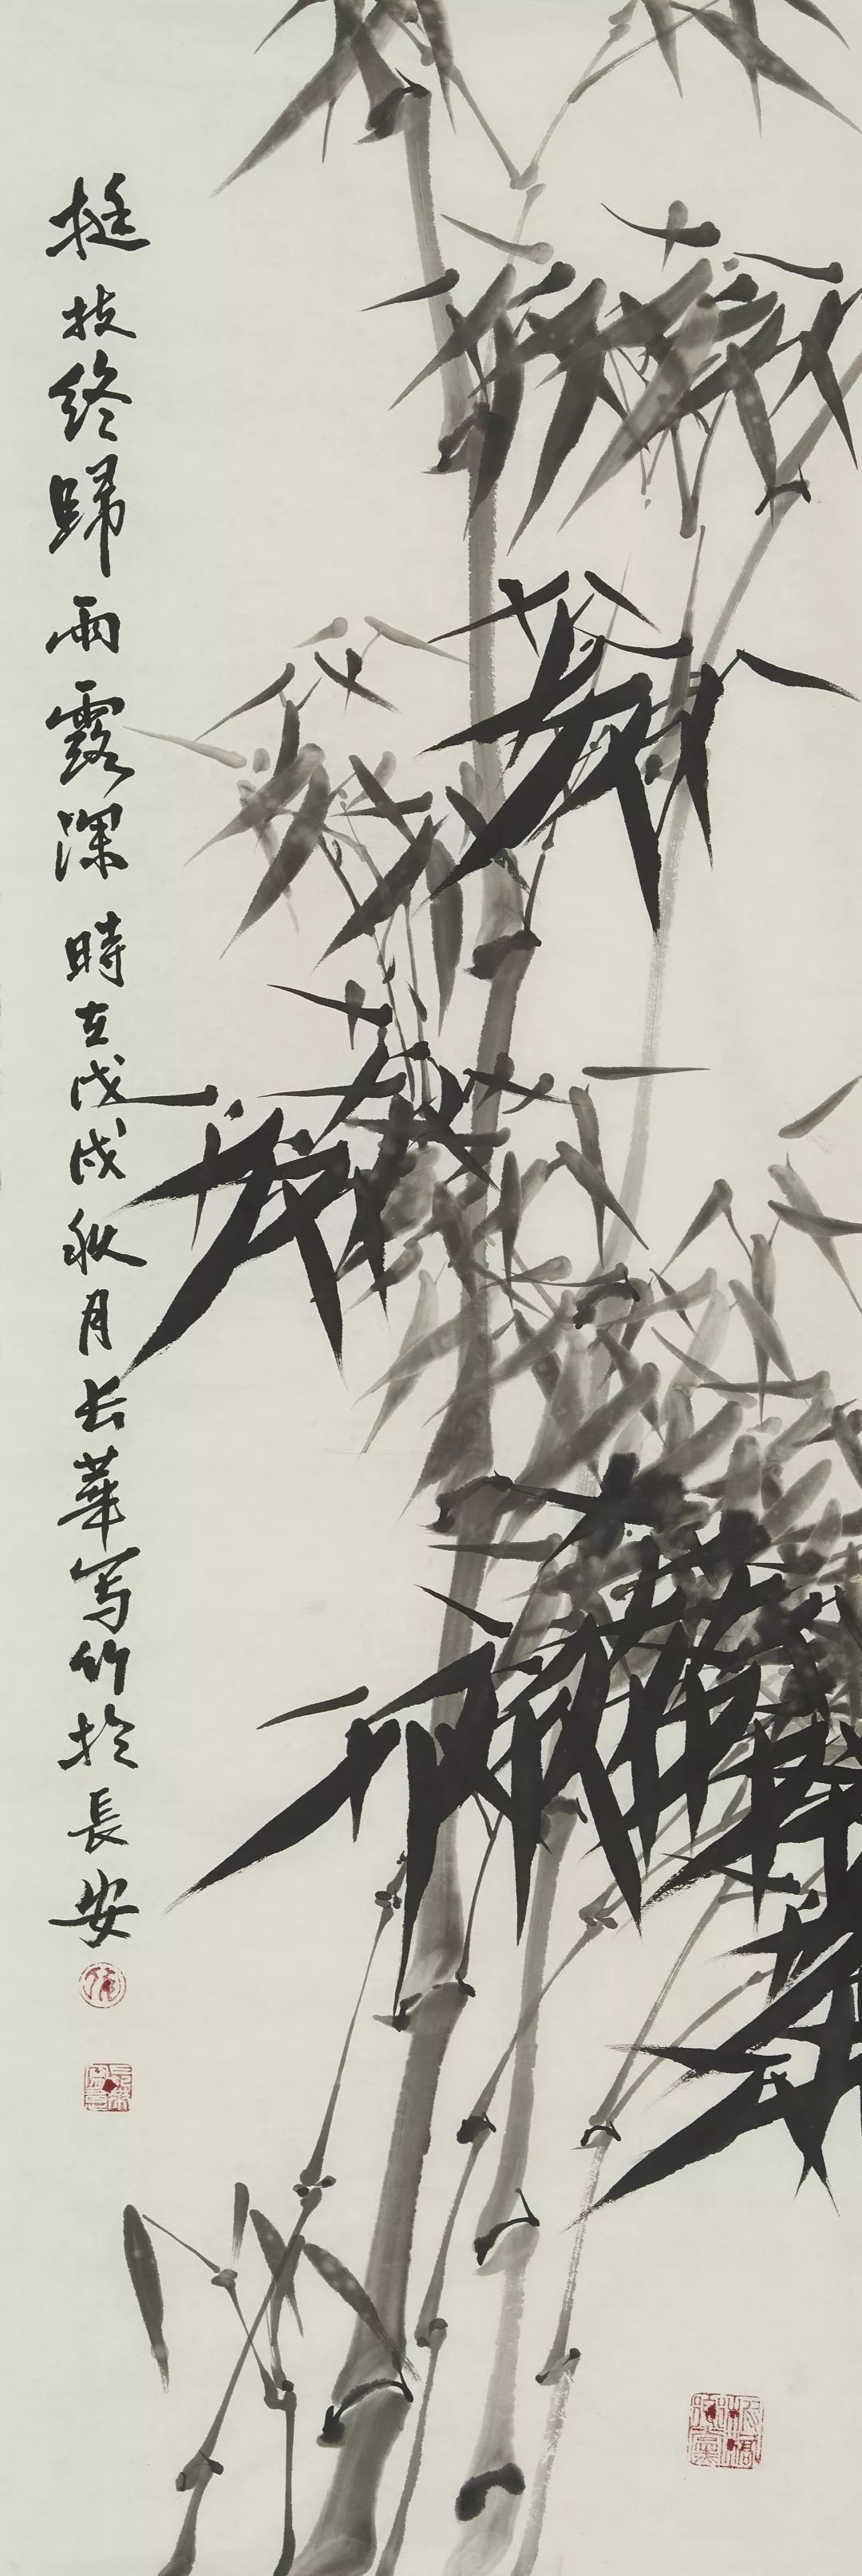 挺技终歸雨露深時在戊戌秋月长華写竹於長安